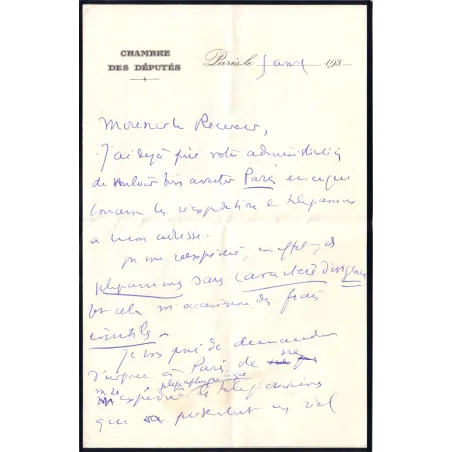 CHAMBRE
DES DÉPUTÉS
Paris, le 5 193
Monsieur le Receveur,
J'ai déjà prié votre administration
de vouloir bien avertir Paris en ce qui
concerne les réexpéditions de télégrammes
à mon adresse.
On me réexpédie, en effet, des
télégrammes sans caractère d'urgence
et cela m'occasionne des frais
inutiles.
Je vous prie de demander
d'urgence à Paris de ne
me réexpédier télégraphiquement
que les télégrammes
qui présentent un réel